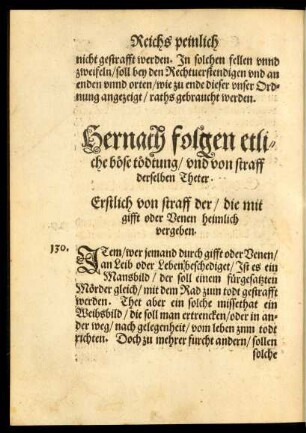 Reichs peinlich
nicht gestrafft werden. Jn solchen fellen vnnd
zweifeln/soll bey den Rechtuerstendigen vnd an
enden vnnd orten/wie zu ende dieser vnser Ord-
nung angezeigt/raths gebraucht werden.
Hernach folgen etli-
che böse tödtung/vnd von straff
derselben Theter.
Erstlich von straff der/die mit
gifft oder Venen heimlich
vergeben.
130. JTem/wer jemand durch gifft oder Venen/
an Leib oder Leben beschediget/Jst es ein
Mansbild/der soll einem fürgesatzten
Mörder gleich/mit dem Rad zum todt gestrafft
werden. Thet aber ein solche missethat ein
Weibsbild/die soll man ertrencken/oder in an
der weg/nach gelegenheit/vom leben zum todt
richten. Doch zu mehrer furcht andern/sollen
solche